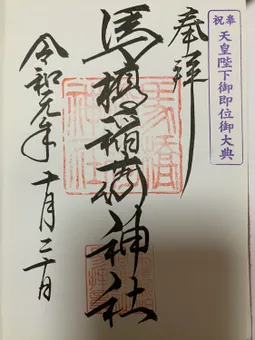 奉祝 天皇陛下御即位御大典
奉拝
馬橋稲荷神社
令和元年 十月二十日
馬橋
神社